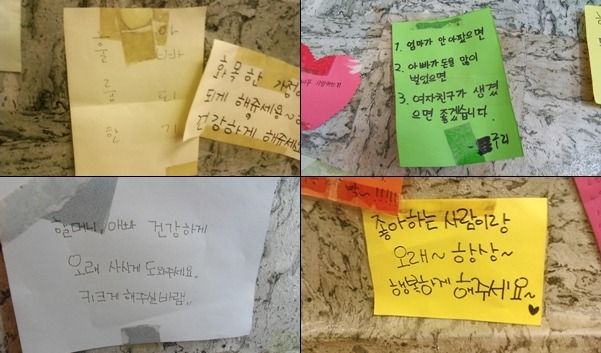 훌륭한
아빠되기
화목한 가정
되게 해주세용~
건강하게 해주세요
1. 엄마가 안 아팠으면
2. 아빠가 돈을 많이
벌었으면
3. 여자친구가 생겼
으면 좋겠습니다.
구리
할머니, 아빠 건강하게
오래 사시게 도와주세요.
키크게 해주실바람..
좋아하는 사람이랑
오래~ 항상~
행복하게 해주세요~